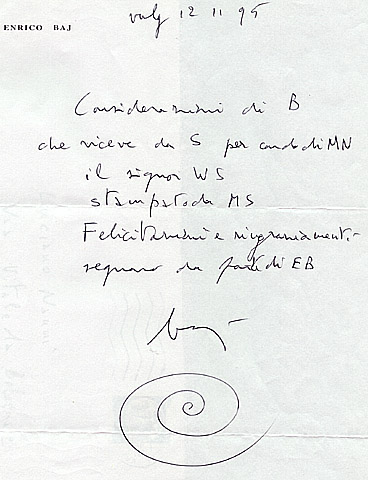 ENRICO BAJ
12 11 95
Considerazioni di B
che riceve da S per conto di MN
il signor WS
stampato da MS
Felicitazioni e ringraziamenti
seguono da parte di EB
baj